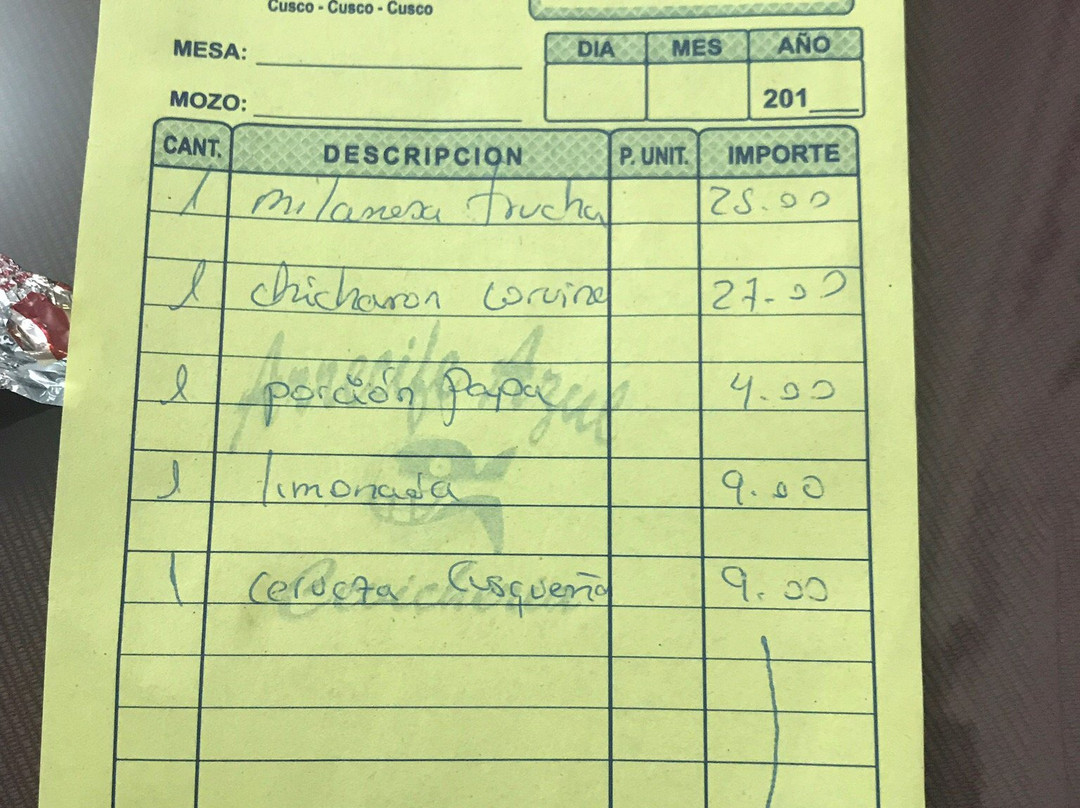 Cusco - Cusco - Cusco
MESA:
DIA MES AÑO
MOZO:
201
CANT. DESCRIPCION P. UNIT. IMPORTE
1 milanesa trucha 25.00
1 chicharon corvina 27.00
1 porción papa 4.00
1 limonada 9.00
1 cerveza Cusqueña 9.00
Arrecife Azul
Cevicheria